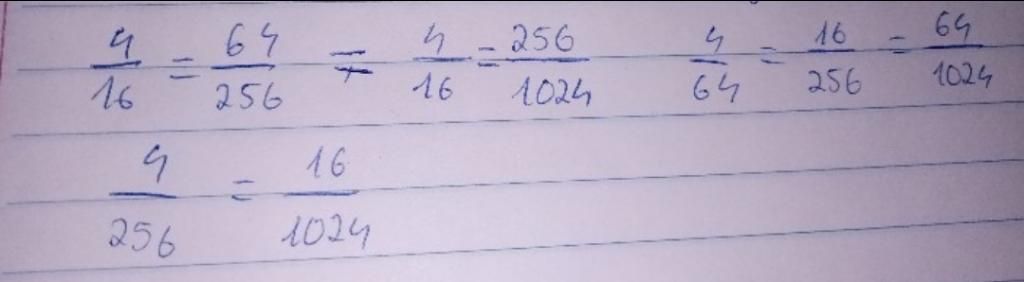 4/16 = 64/256 = 4/16 = 256/1024 4/64 = 16/256 = 64/1024
4/256 = 16/1024